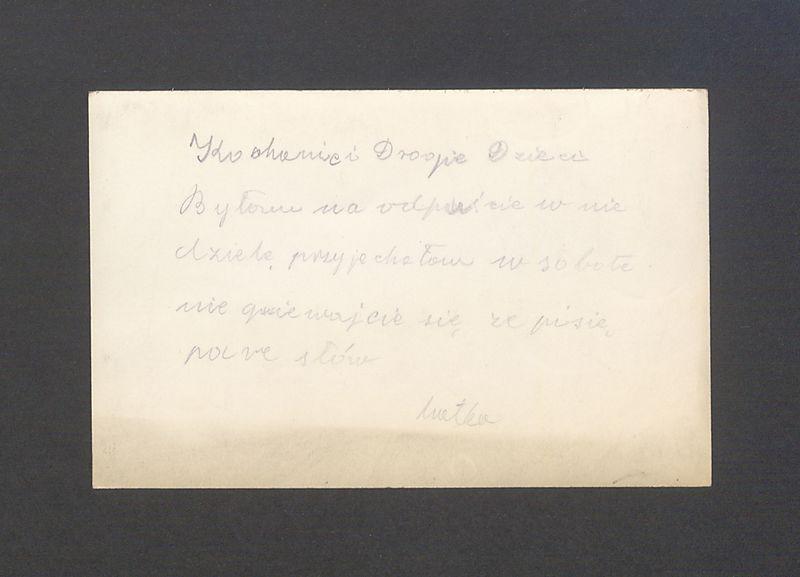 Kochanići Drogie Dzieci
Byłam na odpuście w nie
dzielę przyjechałam w sobote
nie gniewajcie się ze pisię
pare słów
Matka